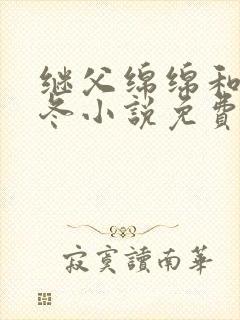 继父绵绵和
冬小說免費
寂寞讀南華